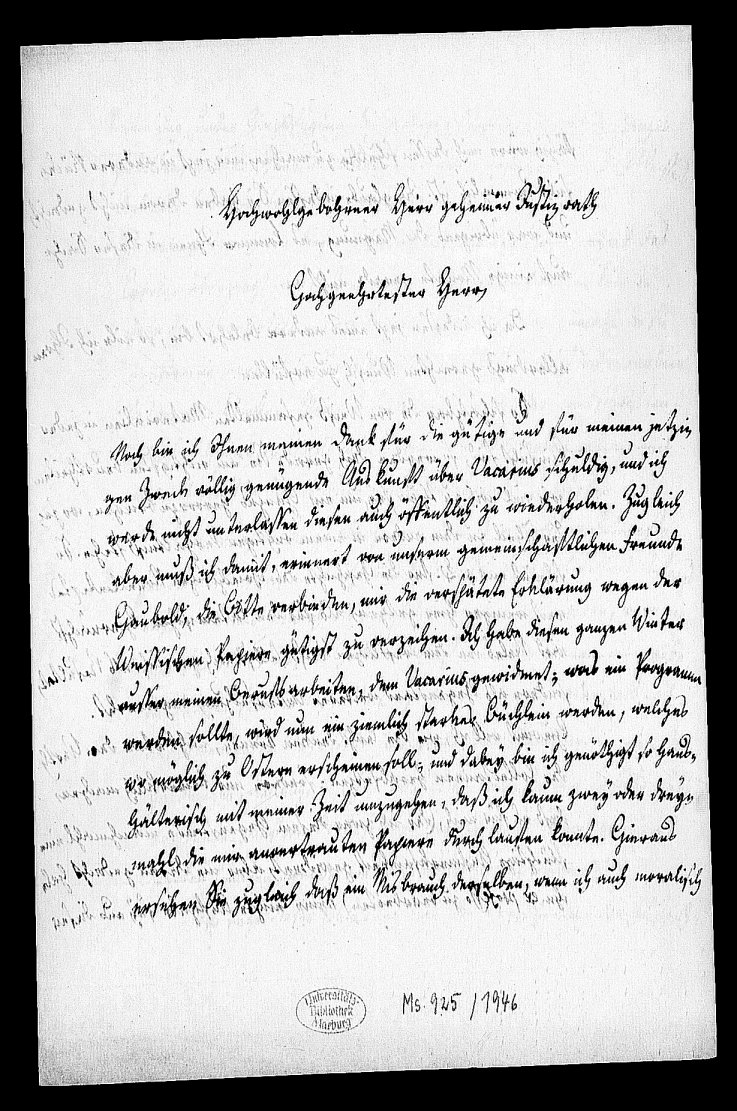 Hochwohlgebohrner Herr geheimer Justizrath
Hochgeehrtester Herr,
Noch bin ich Ihnen meinen Dank für die gütige und für meinen jetzi-
gen Zweck völlig genügende Auskunft über Vacarius schuldig, und ich
werde nicht unterlassen diesen auch öffentlich zu wiederholen. Zugleich
aber muß ich damit, erinnert von unserm gemeinschaftlichen Freunde
Haubold, die Bitte verbinden, mir die verspätete Erklärung wegen der
Weissischen Papiere gütigst zu verzeihen. Ich habe diesen ganzen Winter
ausser meinen Berufsarbeiten, dem Vacarius gewidmet; was ein Programm
werden sollte, wird nun ein ziemlich starkes Büchlein werden, welches
wo möglich zu Ostern erscheinen soll; und dabey bin ich genöthigt so haus-
hälterisch mit meiner Zeit umzugehen, daß ich kaum zwey oder drey-
mahl die mir anvertrauten Papiere durchlaufen konnte. Hieraus
ersehen Sie zugleich daß ein Misbrauch derselben, wenn ich auch moralisch
Universitäts-
Bibliothek
Marburg
Ms. 925 / 1946